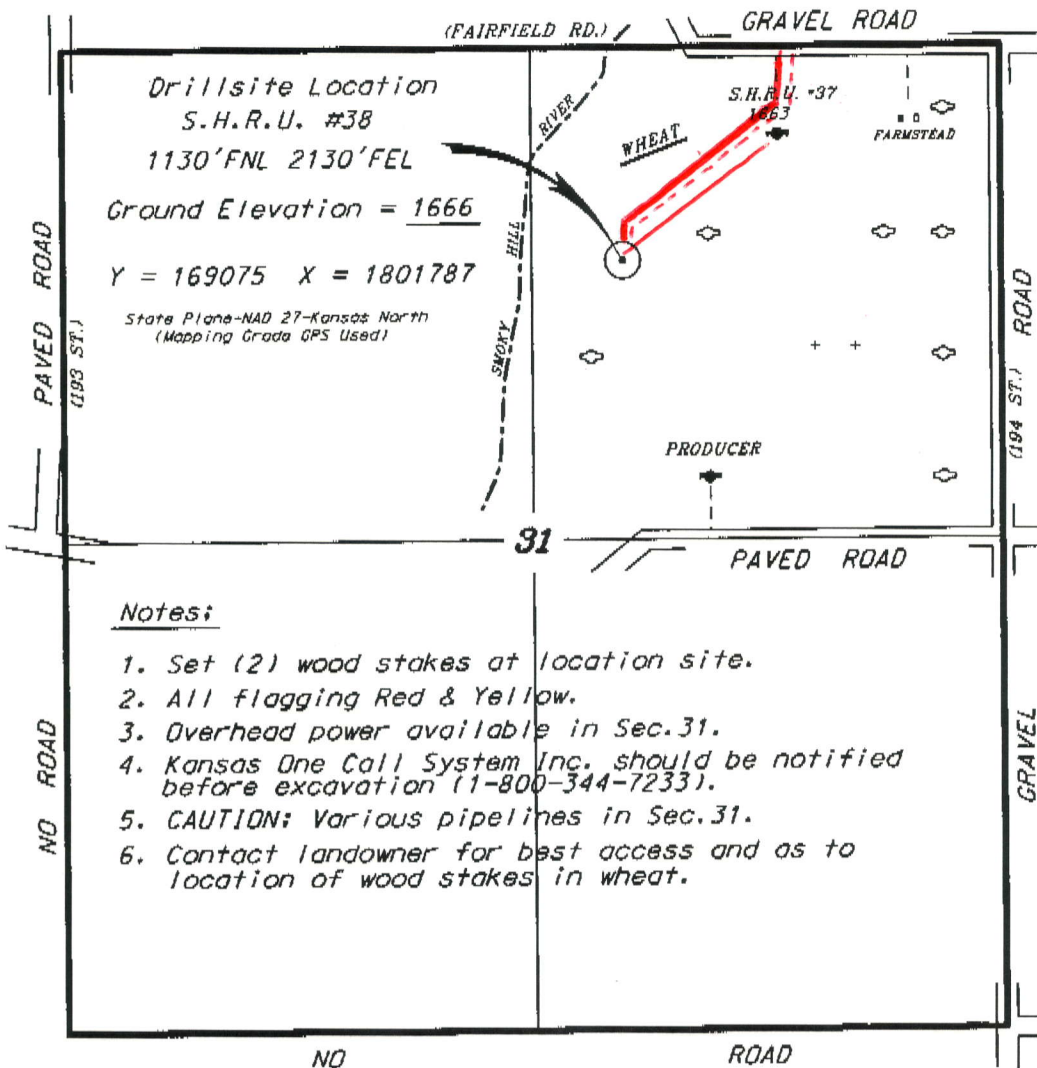 (FAIRFIELD RD.)
GRAVEL ROAD
Drillsite Location
S.H.R.U. #38
1130'FNL 2130'FEL
Ground Elevation = 1666
Y = 169075 X = 1801787
State Plane-NAD 27-Kansas North
(Mapping Grade GPS Used)
PAVED ROAD
(193 ST.)
SMOKY HILL RIVER
WHEAT
S.H.R.U. #37
1663
FARMSTEAD
ROAD
(194 ST.)
PRODUCER
31
PAVED ROAD
Notes:
1. Set (2) wood stakes at location site.
2. All flagging Red & Yellow.
3. Overhead power available in Sec.31.
4. Kansas One Call System Inc. should be notified
before excavation (1-800-344-7233).
5. CAUTION: Various pipelines in Sec.31.
6. Contact landowner for best access and as to
location of wood stakes in wheat.
NO ROAD
GRAVEL
NO ROAD